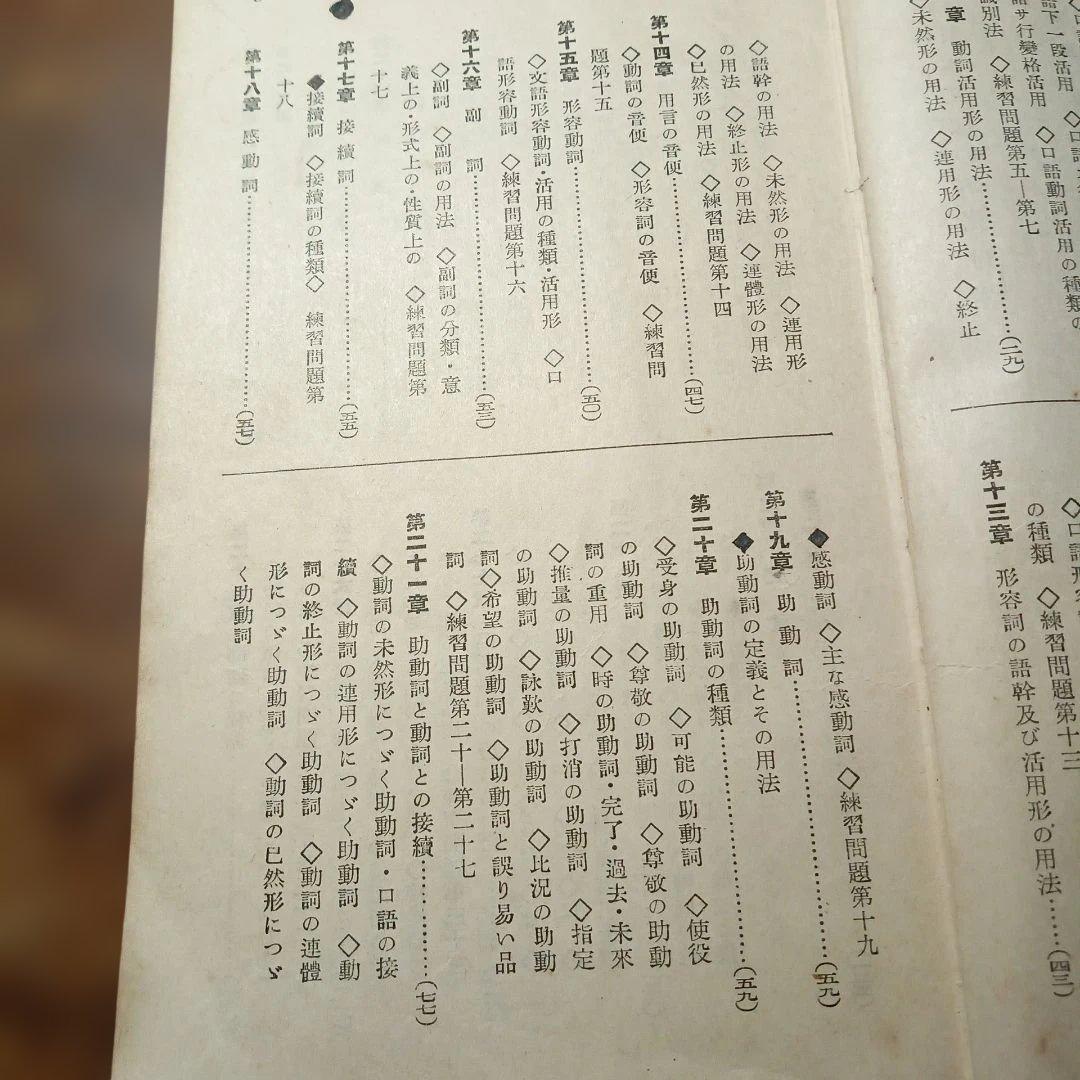 語下一段活用 ◇口語
語サ行變格活用 ◇口語動詞活用の種類の
識別法 ◇練習問題第五―第七
章 動詞活用形の用法……………(二九)
◇未然形の用法 ◇連用形の用法 ◇終止
◇口語形容
の種類 ◇練習問題第十三
第十三章 形容詞の語幹及び活用形の用法……(四三)
◇語幹の用法 ◇未然形の用法 ◇連用形
の用法 ◇終止形の用法 ◇連體形の用法
◇已然形の用法 ◇練習問題第十四
第十四章 用言の音便……………(四七)
◇動詞の音便 ◇形容詞の音便 ◇練習問
題第十五
第十五章 形容動詞……………(五〇)
◇文語形容動詞・活用の種類・活用形 ◇口
語形容動詞 ◇練習問題第十六
第十六章 副詞……………(五三)
◇副詞 ◇副詞の用法 ◇副詞の分類・意
義上の・形式上の・性質上の ◇練習問題第
十七
第十七章 接續詞……………(五五)
◆接續詞 ◇接續詞の種類◇ 練習問題第
十八
第十八章 感動詞……………(五七)
◆感動詞 ◇主な感動詞 ◇練習問題第十九
第十九章 助動詞……………(五九)
◆助動詞の定義とその用法
第二十章 助動詞の種類……………(五九)
◇受身の助動詞 ◇可能の助動詞 ◇使役
の助動詞 ◇尊敬の助動詞 ◇尊敬の助動
詞の重用 ◇時の助動詞・完了・過去・未來
◇推量の助動詞 ◇打消の助動詞 ◇指定
の助動詞 ◇詠歎の助動詞 ◇比況の助動
詞◇希望の助動詞 ◇助動詞と誤り易い品
詞 ◇練習問題第二十―第二十七
第二十一章 助動詞と動詞との接續……………(七七)
◇動詞の未然形につゞく助動詞・口語の接
續 ◇動詞の連用形につゞく助動詞 ◇動
詞の終止形につゞく助動詞 ◇動詞の連體
形につゞく助動詞 ◇動詞の已然形につゞ
く助動詞